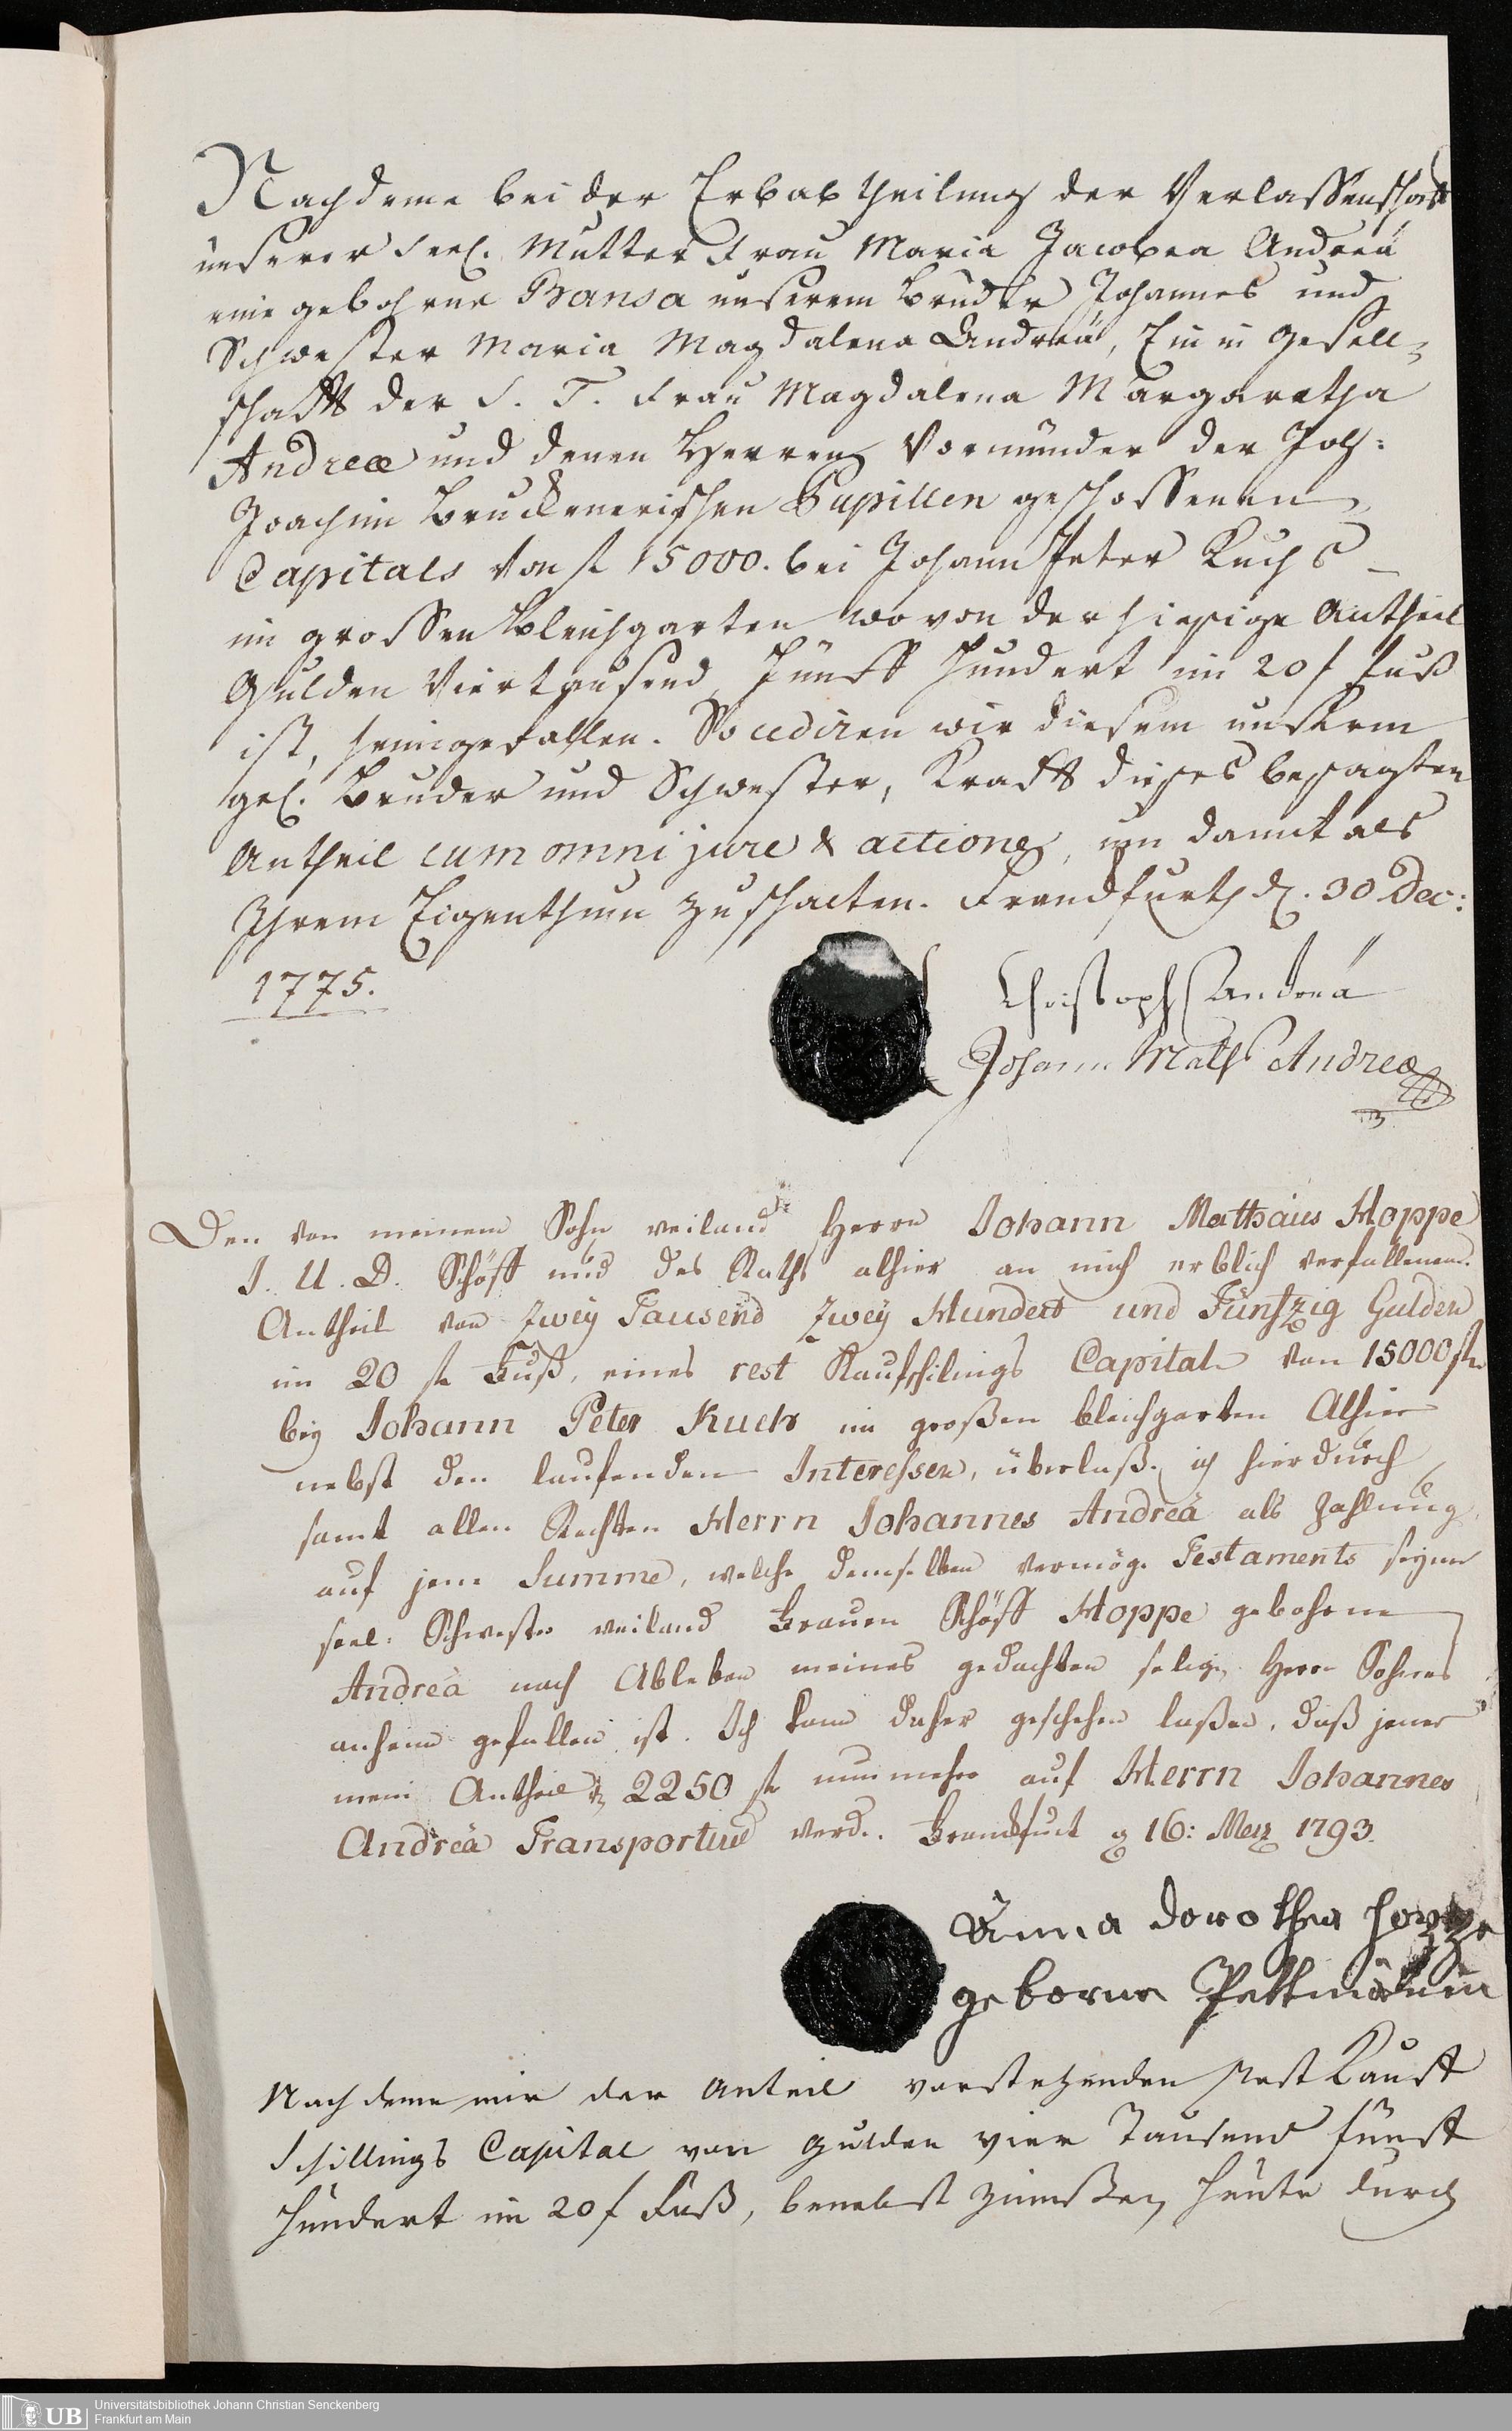 Nachdeme bei der Erbabtheilung der Verlassenschafft
unserer seel. Mutter Frau Maria Jacobea Andreä
eine gebohrne Bansa unserem Bruder Johannes und
Schwester Maria Magdalena Andreä, Ein in Gesell-
schafft der S. T. Frau Magdalena Margaretha
Andreæ und denen Herren Vormünder der Joh:
Joachim Bruckenerischen Pupillen geschossenen
Capitals von fl 15000. bei Johann Peter Kuchs
im grossen Bleichgarten wovon der hiesige Antheil
Gulden Viertausend Fünff Hundert im 20 f Fuß
ist, heimgefallen. So cediren wir diesem unserem
gel. Bruder und Schwester, Krafft dieses besagten
Antheil cum omni jure & actione, um damit als
Ihrem Eigenthum zu schalten. Franckfurth d. 30 Dec:
1775.
Christoph Andreä
Johann Mathˢ Andreæ
Den von meinem Sohn weiland Herrn Johann Mathäus Hoppe
J. U. D. Schöff und des Raths alhier an mich erblich verfallenen
Antheil von Zwey Tausend Zwey Hundert und Fünfzig Gulden
im 20 fl Fuß, eines rest Kaufschilings Capitals von 15000 fl
bey Johann Peter Kuchs im großen bleichgarten Alhier
nebst den laufenden Interessen, überlaß ich hierdurch
samt allen Rechten Herrn Johannes Andreä als Zahlung
auf jene Summe, welche demselben vermög Testaments seyner
seel. Schwester weiland Frauen Schöff Hoppe gebohrne
Andreä nach Ableben meines gedachten selig. Herrn Sohnes
anheim gefallen ist. Ich kann daher geschehen laßen, daß jener
mein Antheil 2250 fl nunmehro auf Herrn Johannes
Andreä Transportirt werd. Franckfurt 16: Merz 1793.
Anna Dorothea Hoppe
geborne
Nachdeme mir der Anteil vorstehenden Rest Kauff
Schillings Capital von Gulden vier Tausend fünff
Hundert im 20 f Fuß, benebst Zinnßen heute durch
Universitätsbibliothek Johann Christian Senckenberg
Frankfurt am Main
UB